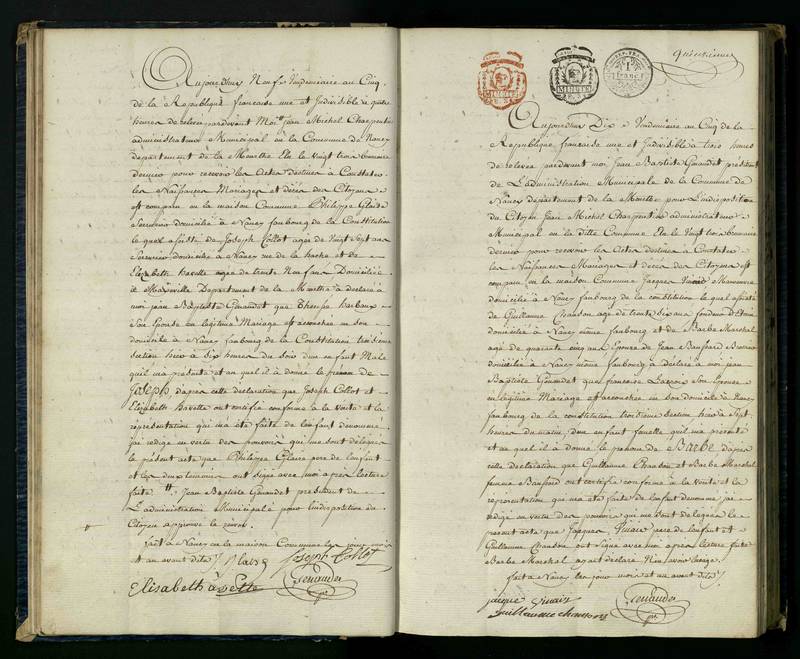 Aujourd'huy Neuf Vendemiaire an Cinq
de la Republique francaise une et Indivisible a quatre
heures de relevée pardevant Moi Jean Michel Charpentier
administrateur Municipal de la Commune de Nancy
departement de la Meurthe Elu le vingt trois brumaire
dernier pour recevoir les Actes destinés à Constater
les Naissances Mariages et décès des Citoyens
est comparu en la maison Commune Philippe Glaise
Serrurier domicilié à Nancy faubourg de la Constitution
lequel assisté de Joseph Collot agé de Vingt Sept ans
Serrurier domicilié à Nancy rue de la hache et de
Elizabeth havette agée de trente Neuf ans Domiciliée
à Maxeville Departement de la Meurthe à declaré à
moi jean Baptiste Genaudet que Therese
Son Epouse en légitime Mariage est accouchée en son
domicile à Nancy faubourg de la Constitution troisieme
Section hier à Six heures du Soir d'un enfant Male
quil ma présenté et au quel il à donné le prenom de
Joseph, d'après cette déclaration que Joseph Collot et
Elizabeth Havette ont certifié conforme à la vérité et la
représentation qui ma été faite de l'enfant denommé
jai rédigé en vertu des pouvoirs qui me sont délégués
le présent acte que Philippe Glaise pere de l'enfant
et les deux temoins ont signé avec moi après lecture
faite # Jean Baptiste Genaudet président de
L'administration Municipale pour l'indisposition du
Citoyen approuvé le renvoi.
fait à Nancy en la maison Commune les jour, mois
et an avant dits
Joseph Collot
Elisabeth
Genaudet
Aujourd'huy Dix Vendemiaire an Cinq de la
Republique francaise une et Indivisible à trois heures
de relevée pardevant moi Jean Baptiste Genaudet président
de L'administration Municipale de la Commune de
Nancy departement de la Meurthe pour l'indisposition
du Citoyen Jean Michel Charpentier administrateur
Municipal en la ditte Commune Elu le Vingt trois brumaire
dernier pour recevoir les Actes destinés à Constater
les Naissances Mariages et décès des Citoyens est
comparu en la maison Commune Jacques Manoeuvre
domicilié à Nancy faubourg de la constitution le quel assisté
de Guillaume Chanson agé de trente Six ans fondeur d'Etain
domicilié à Nancy même faubourg et de Barbe Marchal
agé de quarante cinq ans Epouse de Jean
domiciliée à Nancy même faubourg à déclaré à moi jean
Baptiste Genaudet que francoise Lacroix Son Epouse
en légitime Mariage est accouchée en son domicile à Nancy
faubourg de la constitution troisieme Section hier à Sept
heures du matin, d'un enfant femelle quil ma présenté
et au quel il à donné le prenom de Barbe d'après
cette déclaration que Guillaume Chanson et Barbe Marchal
femme ont certifié conforme à la vérité et la
représentation qui ma été faite de l'enfant denommé jai
rédigé en vertu des pouvoirs qui me sont délégués le
présent acte que Jacques pere de l'enfant et
Guillaume Chanson ont signé avec moi après lecture faite
Barbe Marchal ayant déclaré N'en savoir l'usage.
fait à Nancy les jour mois et an avant dits
jacque
Guillaume Chanson
Genaudet